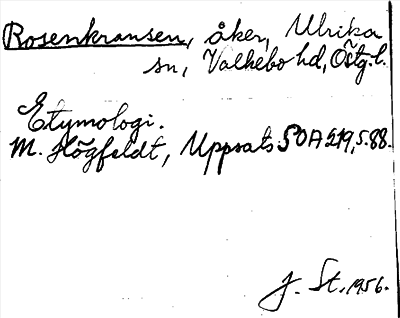 Rosenkransen, åker, Ulrika
sn, Valkebo hd, Östg. l.
Etymologi.
M. Högfeldt, Uppsats SOA 219, s. 88.
J. St. 1956.